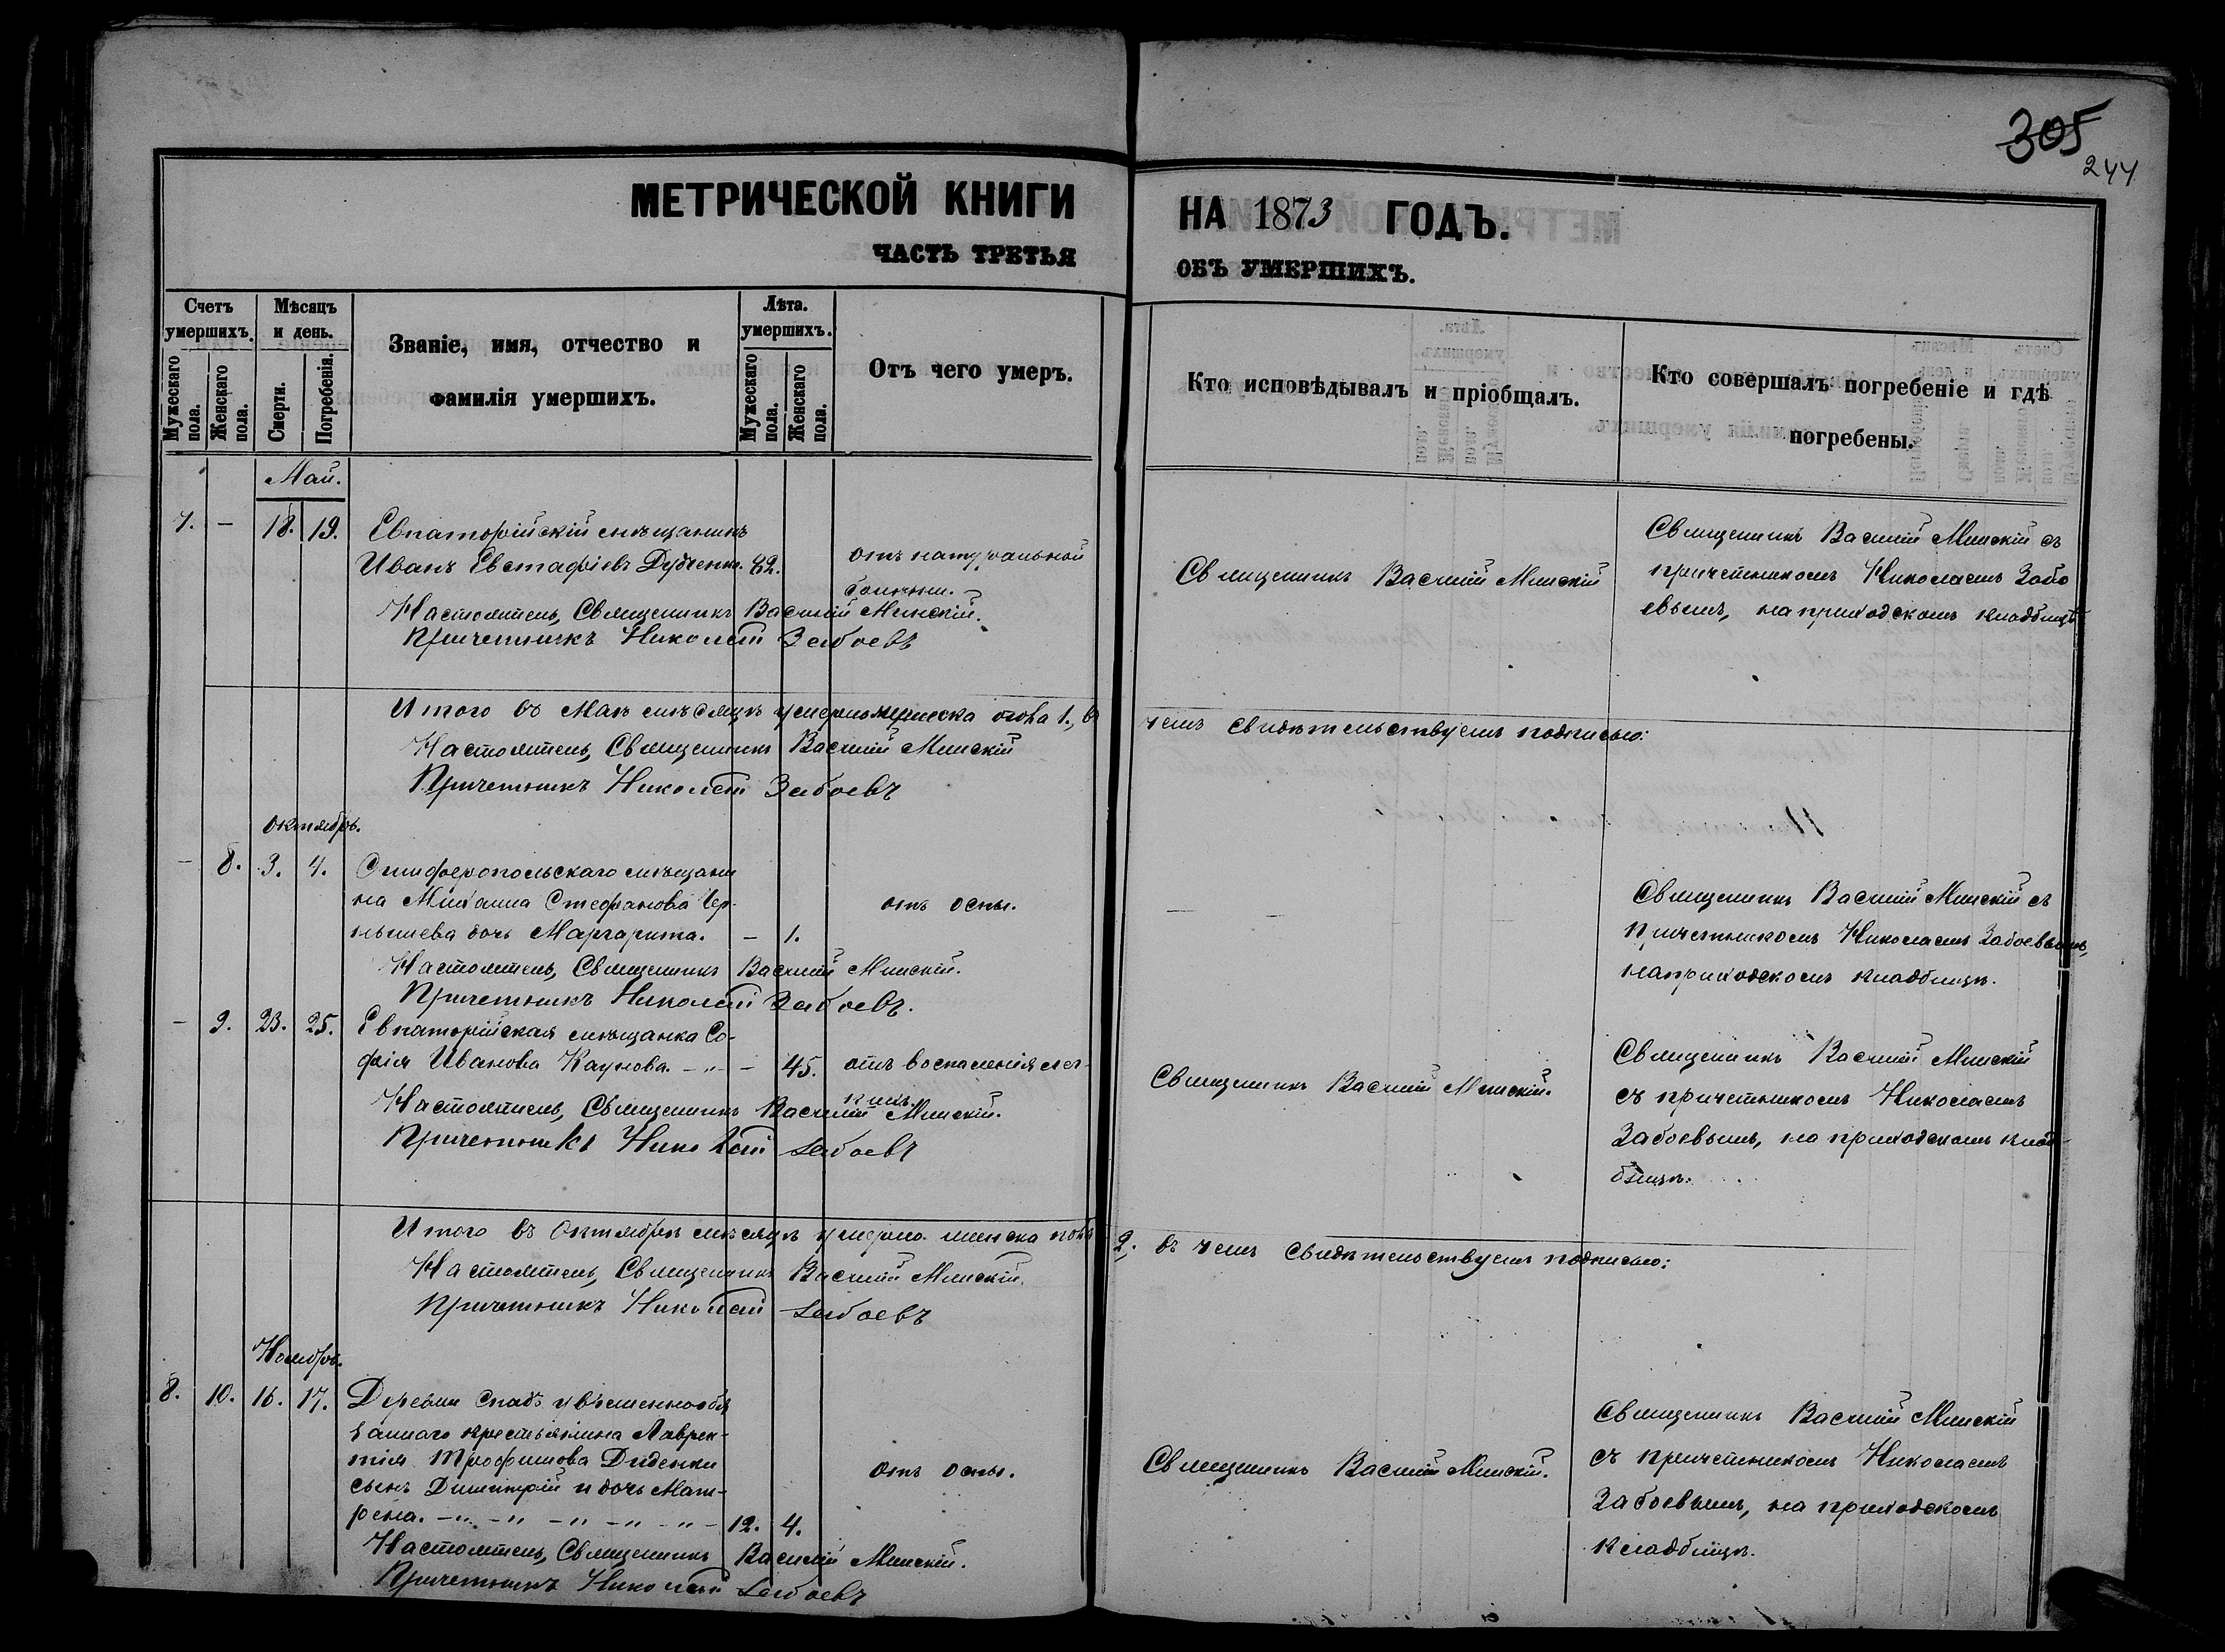 305
244
МЕТРИЧЕСКОЙ КНИГИ
НА 1873 ГОДЪ.
ЧАСТЬ ТРЕТЬЯ
ОБЪ УМЕРШИХЪ.
Счетъ умершихъ.
Мужескаго пола.
Женскаго пола.
Мѣсяцъ и день.
Смерти.
Погребенія.
Званіе, имя, отчество и
фамилія умершихъ.
Лѣта умершихъ.
Мужескаго пола.
Женскаго пола.
Отъ чего умеръ.
Кто исповѣдывалъ и пріобщалъ.
Кто совершалъ погребеніе и гдѣ
погребены.
Май.
7. – 18. 19. Евпаторійскій мѣщанинъ
Иванъ Евстафіевъ 82.
отъ натуральной
Настоятель, Священникъ Василій Минскій.
Причетникъ Николай Забоевъ
Священникъ Василій Минскій
Священникъ Василій Минскій съ
причетникомъ Николаемъ Забо
евымъ, на приходскомъ кладбищѣ
Итого въ Маѣ мѣсяцѣ умерло мужеска пола 1., въ
чемъ свидѣтельствуемъ подписью:
Настоятель, Священникъ Василій Минскій
Причетникъ Николай Забоевъ
Октябрь.
– 8. 3. 4. Симферопольскаго мѣщани
на Михаила Стефанова Чер-
нышева дочь Маргарита. – 1.
отъ оспы.
Настоятель, Священникъ Василій Минскій.
Причетникъ Николай Забоевъ.
Священникъ Василій Минскій съ
причетникомъ Николаемъ Забоевымъ,
на приходскомъ кладбищѣ.
– 9. 23. 25. Евпаторійская мѣщанка Со-
фія Иванова Каунова. – „ – – 45. отъ воспаленія лег-
кихъ.
Настоятель, Священникъ Василій Минскій.
Причетникъ Николай Забоевъ
Священникъ Василій Минскій.
Священникъ Василій Минскій
съ причетникомъ Николаемъ
Забоевымъ, на приходскомъ клад-
бищѣ.
Итого въ Октябрѣ мѣсяцѣ умерло женска пола
2, въ чемъ свидѣтельствуемъ подписью:
Настоятель, Священникъ Василій Минскій.
Причетникъ Николай Забоевъ
Ноябрь.
8. 10. 16. 17. Деревни Спатъ временнообя
заннаго крестьянина Лаврен-
тія Трофимова Диденки
сынъ Димитрій и дочь Мат-
рена. – „ – „ – „ – „ – „ – 12. 4.
отъ оспы.
Настоятель, Священникъ Василій Минскій.
Причетникъ Николай Забоевъ
Священникъ Василій Минскій.
Священникъ Василій Минскій
съ причетникомъ Николаемъ
Забоевымъ, на приходскомъ
кладбищѣ.